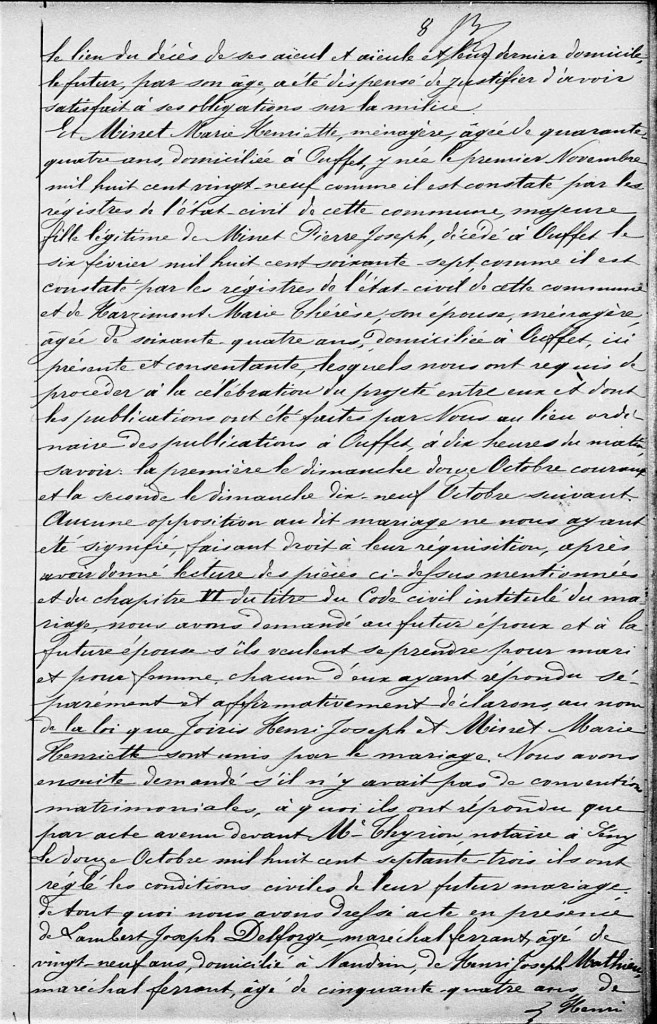 8
le lieu du décès de ses aïeul et aïeule et leur dernier domicile,
le futur, par son âge, a été dispensé de justifier d'avoir
satisfait à ses obligations sur la milice
Et Minet Marie Henriette, ménagère, âgée de quarante-
quatre ans, domiciliée à Ouffet, y née le premier Novembre
mil huit cent vingt-neuf comme il est constaté par les
régistres de l'état-civil de cette commune, majeure
fille légitime de Minet Pierre Joseph, décédé à Ouffet le
six février mil huit cent soixante-sept, comme il est
constaté par les régistres de l'état-civil de cette commune
et de Harzimont Marie Thérèse, son épouse, ménagère,
âgée de soixante quatre ans, domiciliée à Ouffet, ici
présente et consentante, lesquels nous ont requis de
proceder à la célébration du projeté entre eux et dont
les publications ont été faites par Nous au lieu ordi-
naire des publications à Ouffet, à dix heures du matin
savoir: la première le dimanche douze Octobre courant
et la seconde le dimanche dix-neuf Octobre suivant.
Aucune opposition au dit mariage ne nous ayant
été signifiée, faisant droit à leur réquisition, après
avoir donné lecture des pièces ci-dessus mentionnées
et du chapitre VI du titre du Code civil intitulé du ma-
riage, nous avons demandé au futur époux et à la
future épouse s'ils veulent se prendre pour mari
et pour femme, chacun d'eux ayant répondu sé-
parément et affirmativement déclarons, au nom
de la loi que Joiris Henri Joseph et Minet Marie
Henriette sont unis par le mariage. Nous avons
ensuite demandé s'il n'y avait pas de convention
matrimoniales, à quoi ils ont répondu que
par acte avenu devant Mr Thyrion, notaire à
le douze Octobre mil huit cent septante-trois ils ont
réglé les conditions civiles de leur futur mariage,
de tout quoi nous avons dressé acte en présence
de Lambert Joseph Delforge, maréchal ferrant, âgé de
vingt-neuf ans, domicilié à Nandrin, de Henri Joseph Mathieu
maréchal ferrant, âgé de cinquante-quatre ans, de
Henri